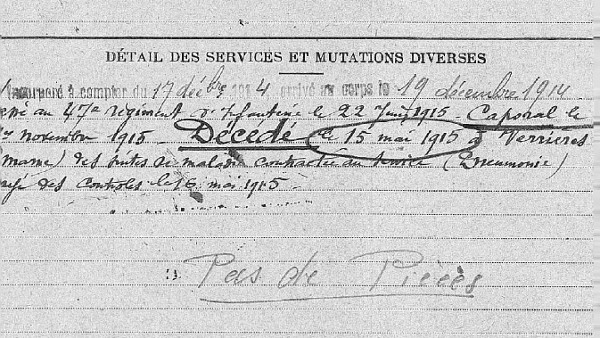 DÉTAIL DES SERVICES ET MUTATIONS DIVERSES
Incorporé à compter du 17 décbre 1914 arrivé au corps le 19 décembre 1914
au 47e régiment d'Infanterie le 22 Juin 1915 Caporal le
novembre 1915 Décédé le 15 mai 1915 à Verrieres
marne) des suites de maladie contractée au service (Pneumonie)
des controles le 16 mai 1915.
Pas de Pièces